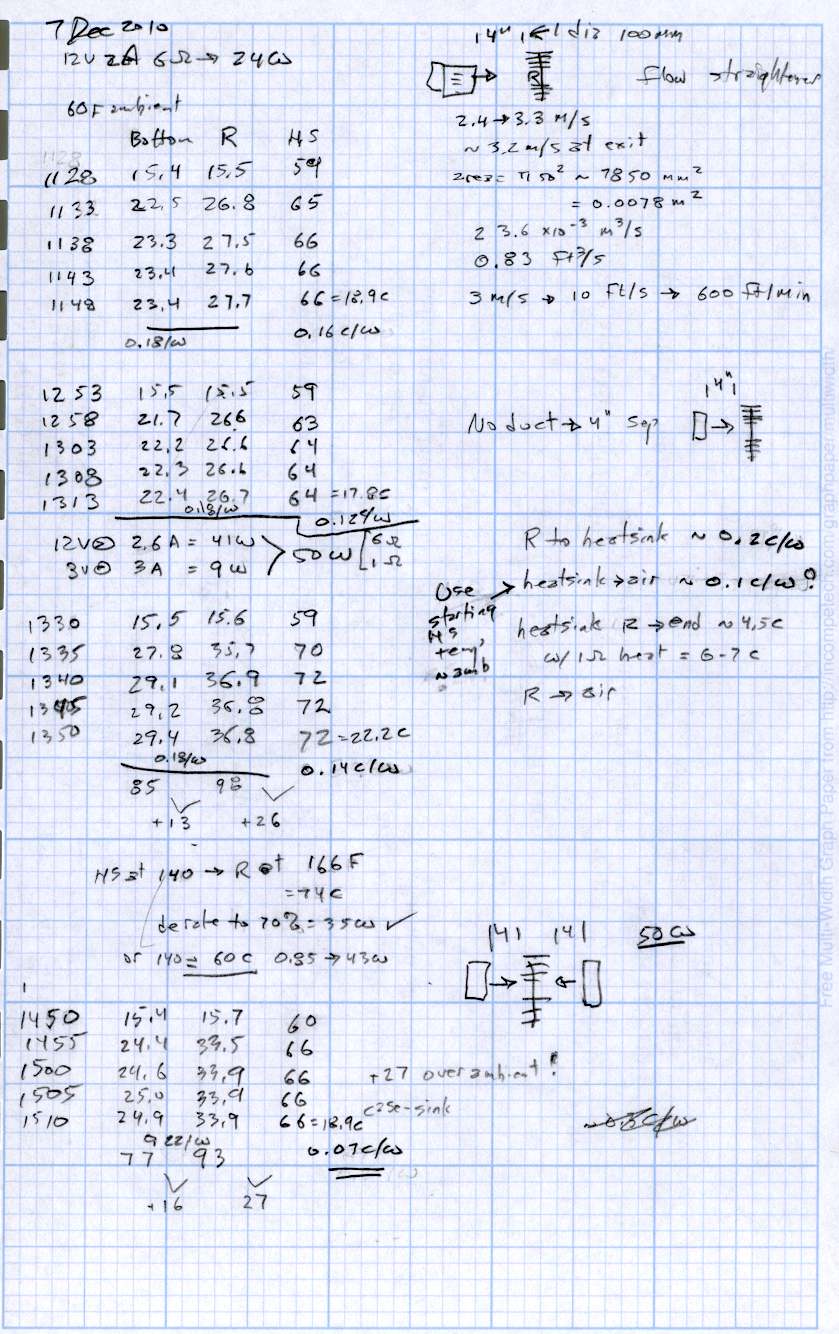 7 Dec 2010
12V 2A 6Ω → 24W
60F ambient
Bottom R HS
1128
1128 15.4 15.5 59
1133 22.5 26.8 65
1138 23.3 27.5 66
1143 23.4 27.6 66
1148 23.4 27.7 66 = 18.9c
0.18/w 0.16 c/w
14" 1" dia 100mm
R
flow straightener
2.4 → 3.3 m/s
~ 3.2 m/s at exit
area = π 50² ~ 7850 mm²
= 0.0078 m²
23.6 x10⁻³ m³/s
0.83 ft³/s
3 m/s → 10 ft/s → 600 ft/min
1253 15.5 15.5 59
1258 21.7 26.6 63
1303 22.2 26.6 64
1308 22.3 26.6 64
1313 22.4 26.7 64 = 17.8c
0.18/w 0.12c/w
|4"|
No duct → 4" sep
12V@ 2.6A = 41W
3V@ 3A = 9W
50W
6Ω
1Ω
R to heatsink ~ 0.2c/w
heatsink → air ~ 0.1c/w?
Use starting HS temp, ~amb
heatsink R → end ~ 4.5c
w/ 1Ω heat = 6-7c
R → air
1330 15.5 15.6 59
1335 27.8 35.7 70
1340 29.1 36.9 72
1345 29.2 36.8 72
1350 29.4 36.8 72 = 22.2c
0.18/w 0.14c/w
85 98
+13 +26
HS at 140 → R at 166F
= 74c
derate to 70% = 35W ✓
or 140 = 60c 0.85 → 43W
|4| |4| 50W
1450 15.4 15.7 60
1455 24.4 33.5 66
1500 24.6 33.9 66
1505 25.0 33.9 66
1510 24.9 33.9 66 = 18.9c
+27 over ambient!
case-sink
0.22/w 0.07c/w
77 93
+16 27
Free Multi-Width Graph Paper from http://incompetech.com/graphpaper/multiwidth/